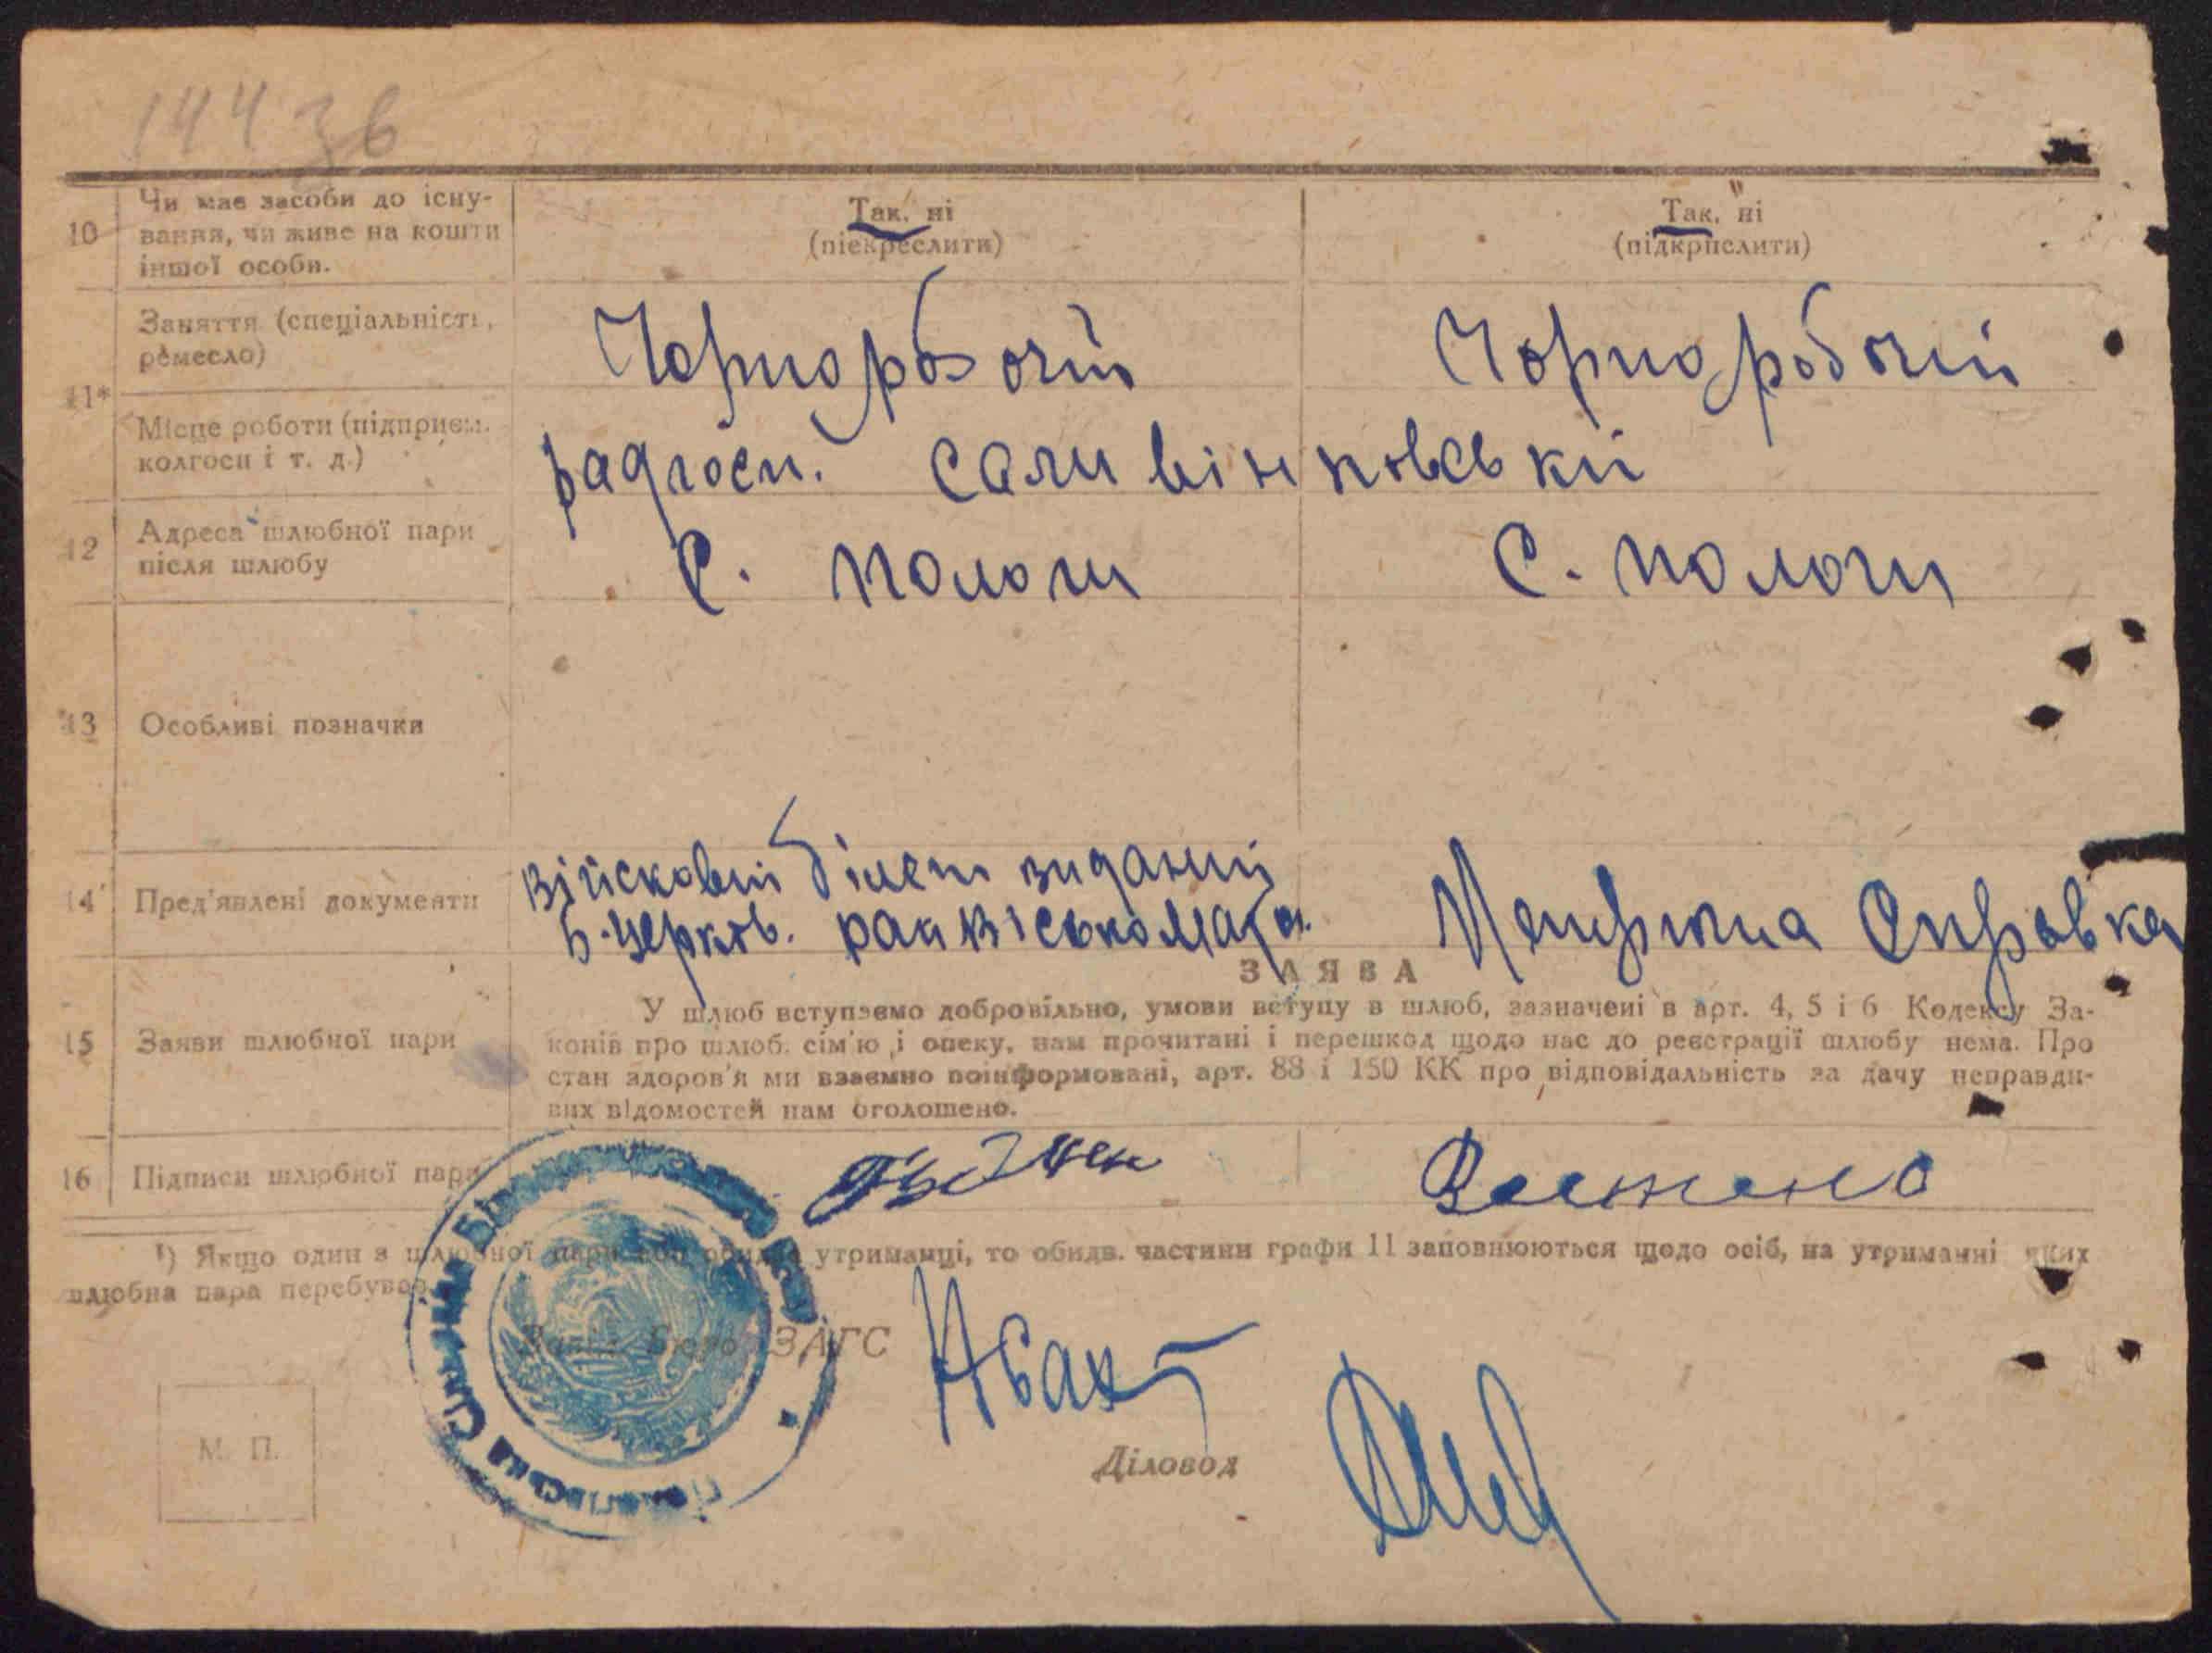 144 зв
10 Чи має засоби до існу-
вання, чи живе на кошти
іншої особи.
Так, ні
(піекреслити)
Так, ні
(підкрпслити)
11*
Заняття (спеціальність,
ремесло)
Чорноробочій
Чорноробочій
Місце роботи (підприєм.
колгосп і т. д.)
радгосп. Саливінковській
12 Адреса шлюбної пари
після шлюбу
С. Пологи
С. Пологи
13 Особливі позначки
14 Пред'явлені документи
Війсковий білет виданий
Б-Церков. райвіськомата
Метрична Справка
15 Заяви шлюбної пари
ЗАЯВА
У шлюб вступаємо добровільно, умови вступу в шлюб, зазначені в арт. 4, 5 і 6 Кодексу За-
конів про шлюб, сім'ю і опеку, нам прочитані і перешкод щодо нас до реєстрації шлюбу нема. Про
стан здоров'я ми взаємно поінформовані, арт. 88 і 150 КК про відповідальність за дачу неправди-
вих відомостей нам оголошено.
16 Підписи шлюбної пари
¹) Якщо один з шлюбної пари або обидва утриманці, то обидв. частини графи 11 заповнюються щодо осіб, на утриманні яких
шлюбна пара перебуває.
Завід. Бюро ЗАГС
М. П.
Діловод